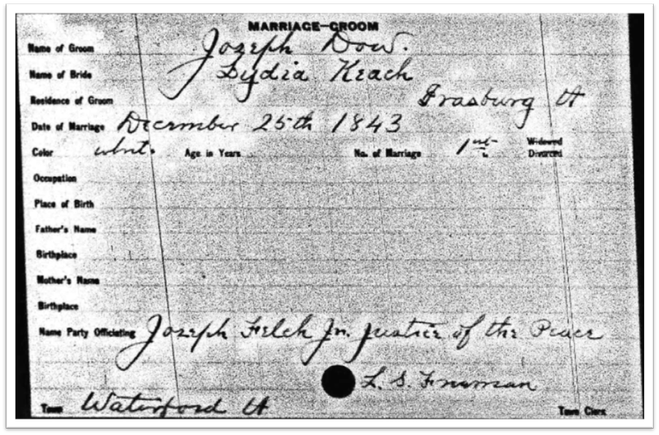 MARRIAGE—GROOM
Name of Groom Joseph Dow.
Name of Bride Lydia Keach
Residence of Groom Irasburg Vt
Date of Marriage December 25th 1843
Color Age in Years No. of Marriage 1st Widowed Divorced
Occupation
Place of Birth
Father's Name
Birthplace
Mother's Name
Birthplace
Name Party Officiating Joseph Felch Jr. Justice of the Peace
L. S. Freeman
Town Waterford Vt Town Clerk